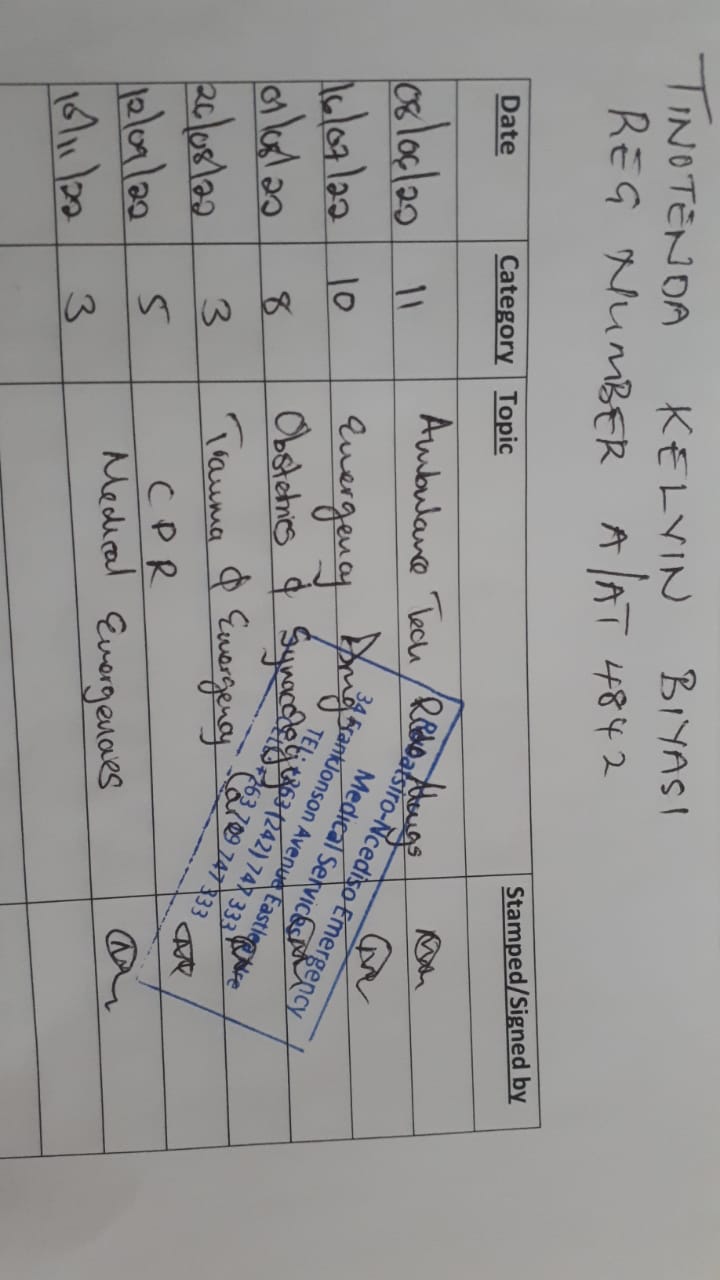 TINOTENDA KELVIN BIYASI
REG NUMBER A/AT 4842
Date Category Topic Stamped/Signed by
08/06/22 11 Ambulance Tech
16/07/22 10 Emergency Drugs
01/08/22 8 Obstetrics & Gynacology
26/08/22 3 Trauma & Emergency Care
12/09/22 5 CPR
16/11/22 3 Medical Emergencies
Rubatsiro-Ncediso Emergency
Medical Services
34 Frank Jonson Avenue Eastlea
TEL: +263 (242) 747 333
+263 789 747 333